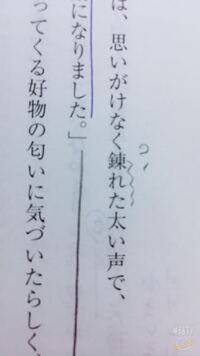 は、思いがけなく錬れた太い声で、
になりました。」
ってくる好物の匂いに気づいたらしく、